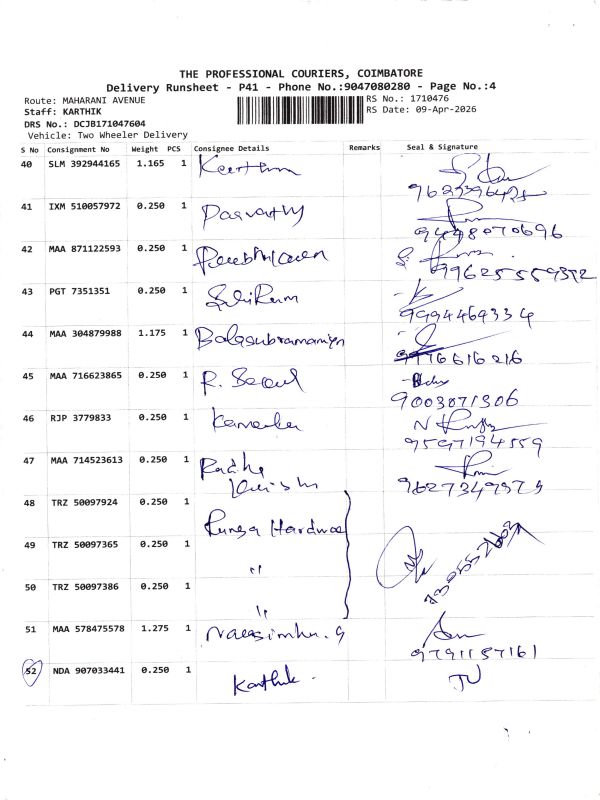 THE PROFESSIONAL COURIERS, COIMBATORE
Delivery Runsheet - P41 - Phone No.:9047080280 - Page No.:4
Route: MAHARANI AVENUE
Staff: KARTHIK
DRS No.: DCJB171047604
Vehicle: Two Wheeler Delivery
RS No.: 1710476
RS Date: 09-Apr-2026
S No Consignment No Weight PCS Consignee Details Remarks Seal & Signature
40 SLM 392944165 1.165 1 Keerthana
41 IXM 510057972 0.250 1 Parvathy
9498070696
42 MAA 871122593 0.250 1
43 PGT 7351351 0.250 1
9994469334
44 MAA 304879988 1.175 1 Balasubramaniyn
9776616216
45 MAA 716623865 0.250 1
9003071306
46 RJP 3779833 0.250 1
9597194559
47 MAA 714523613 0.250 1 Radha
9627349979
48 TRZ 50097924 0.250 1
49 TRZ 50097365 0.250 1 "
50 TRZ 50097386 0.250 1 "
51 MAA 578475578 1.275 1
9791157161
52 NDA 907033441 0.250 1 Karthik.